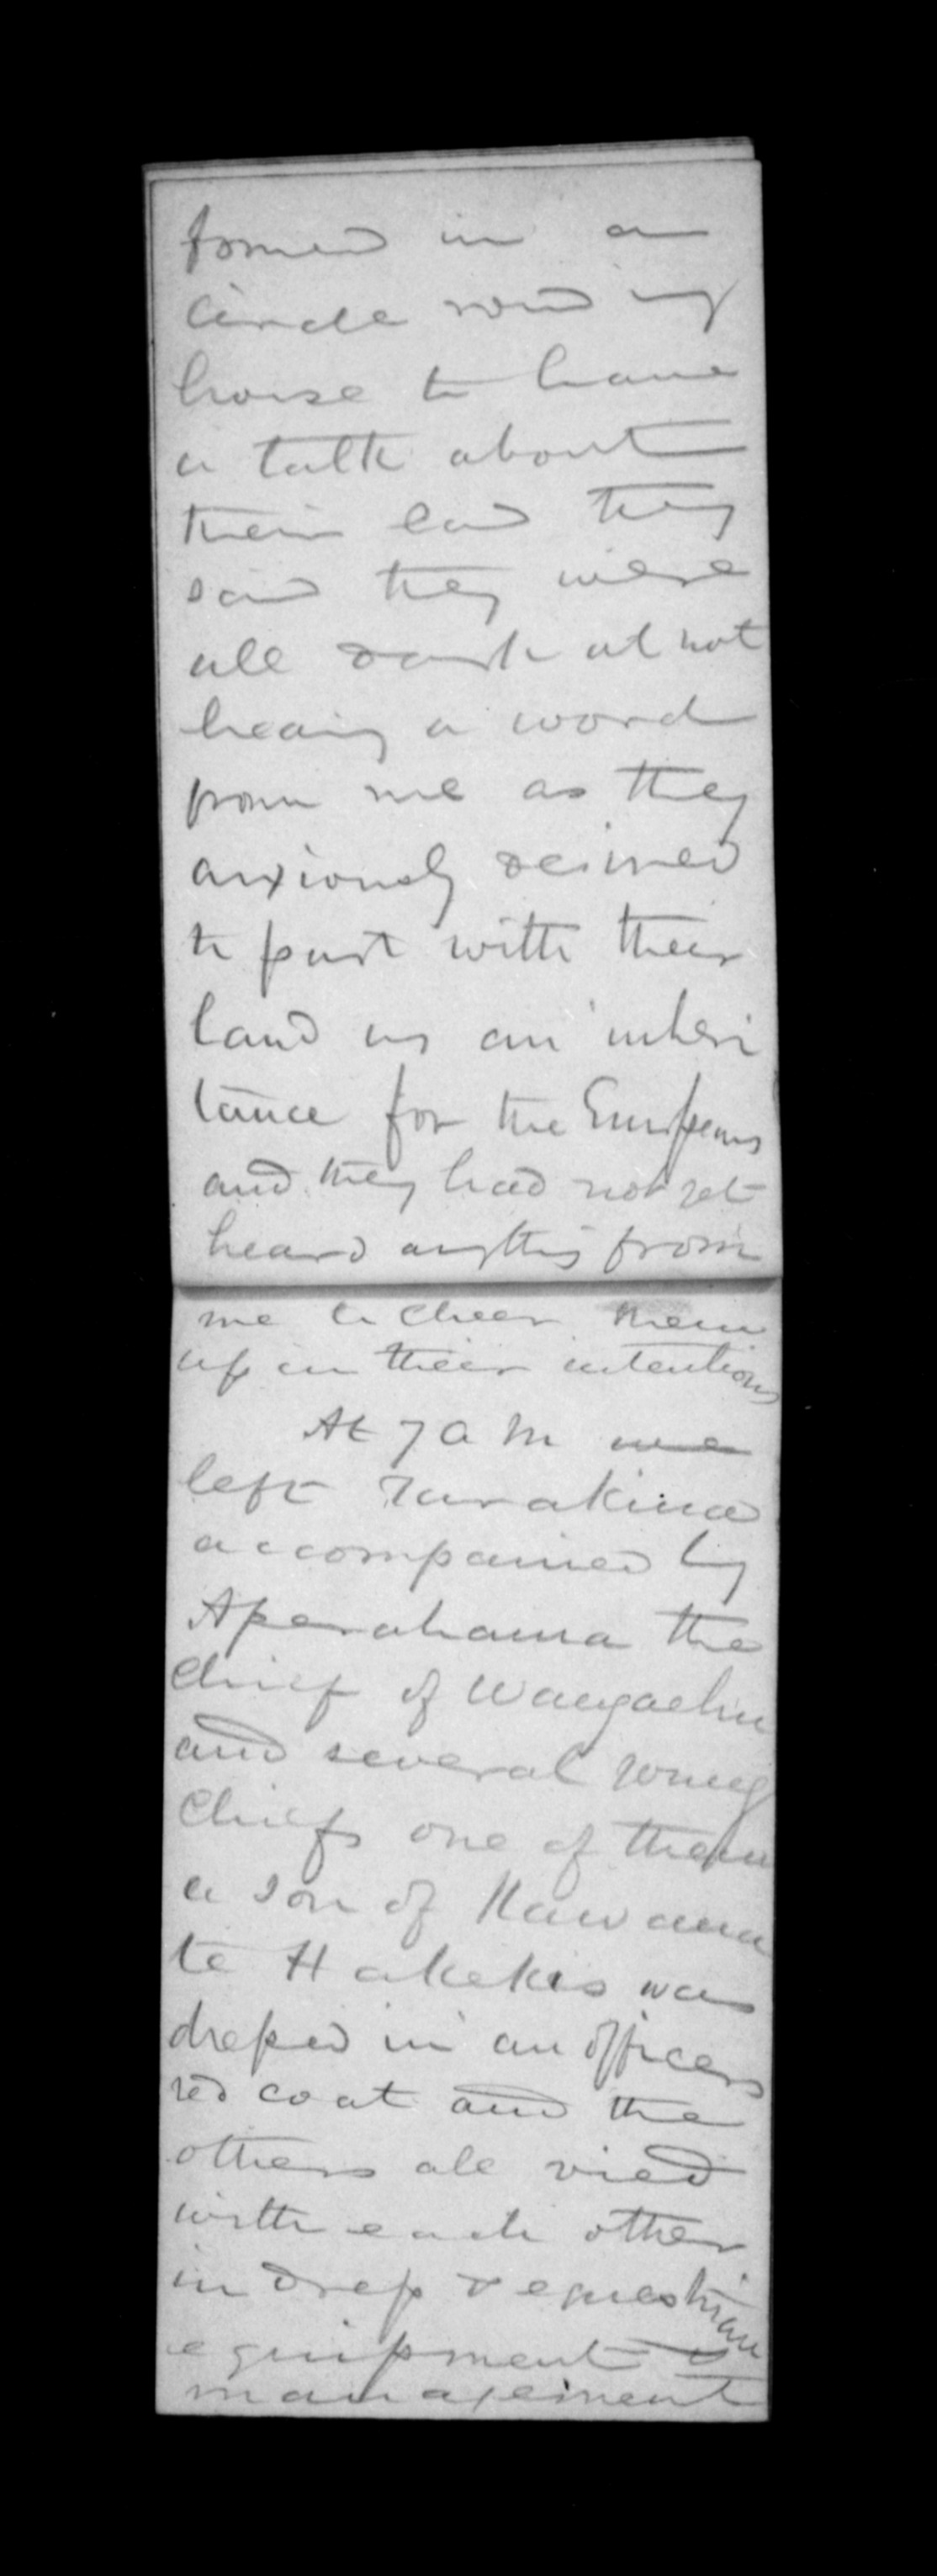 formed in a
circle round my
horse to have
a talk about
their land they
said they were
all dark at not
hearing a word
from me as they
anxiously desired
to part with their
land as an inheri
tance for the Europeans
and they had not yet
heard anything from
me to cheer them
up in their intentions
At 7 A M we
left Turakina
accompained by
Aperahama the
Chief of Wangaehu
and several young
Chiefs one of them
a son of Kawana
te Hakekes was
dressed in an officers
red coat and the
others all vied
with each other
in dress & equestrian
equipment &
management